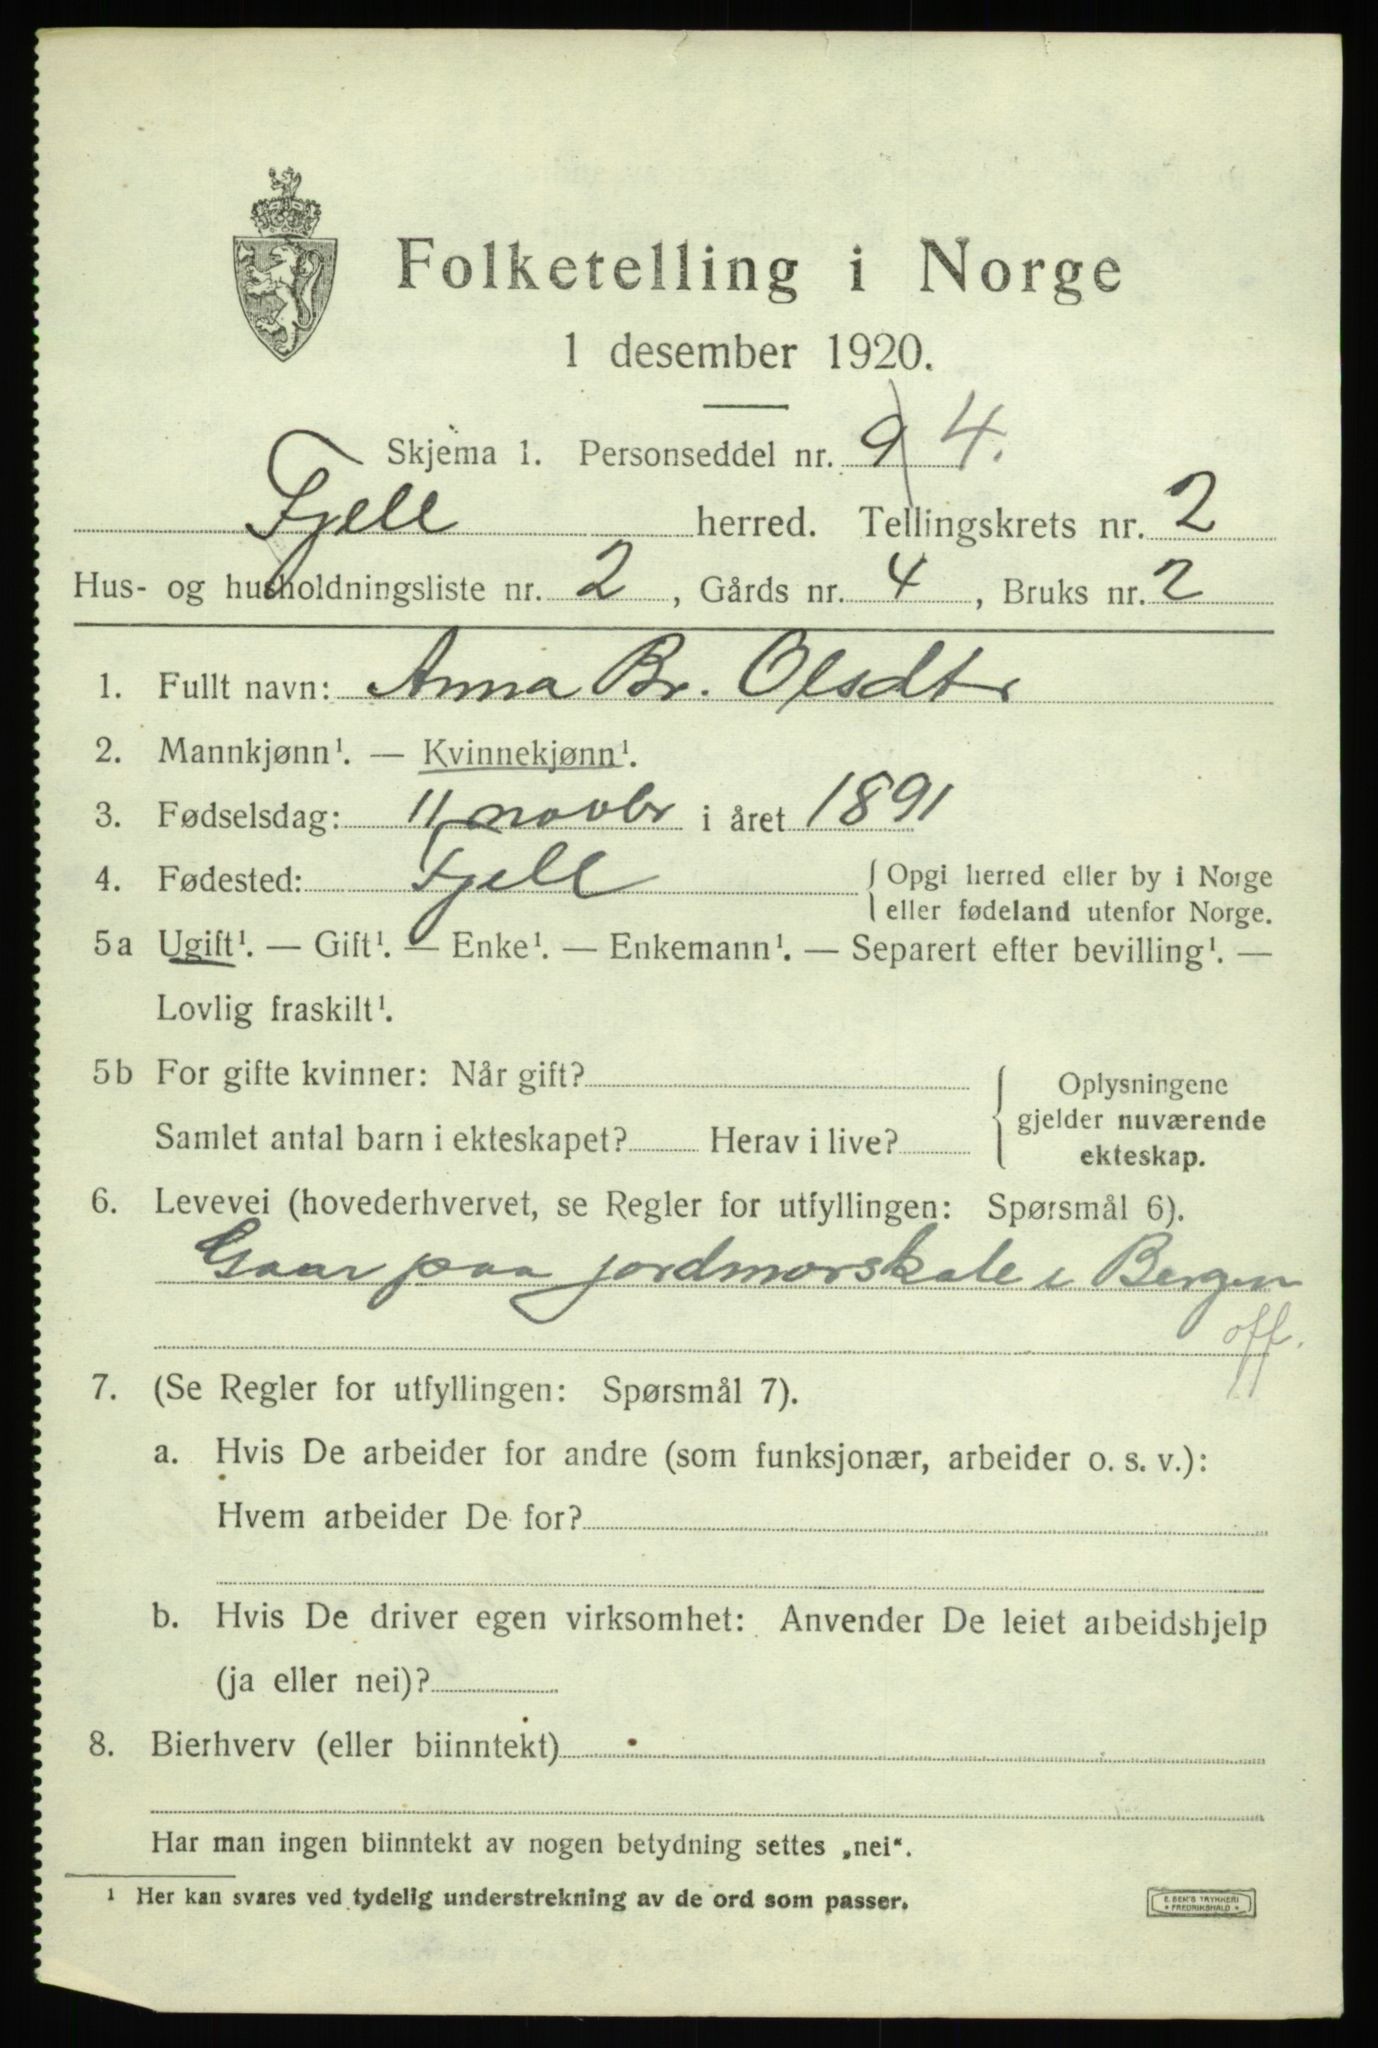 Folketelling i Norge
1 desember 1920.
Skjema 1. Personseddel nr. 9 4.
Fjell herred. Tellingskrets nr. 2
Hus- og husholdningsliste nr. 2, Gårds nr. 4, Bruks nr. 2
1. Fullt navn: Anna Br. Olsdtr
2. Mannkjønn¹. — Kvinnekjønn¹.
3. Fødselsdag: 11 novbr i året 1891
4. Fødested: Fjell { Opgi herred eller by i Norge
eller fødeland utenfor Norge.
5a Ugift¹. — Gift¹. — Enke¹. — Enkemann¹. — Separert efter bevilling¹. —
Lovlig fraskilt¹.
5b For gifte kvinner: Når gift? { Oplysningene
gjelder nuværende
Samlet antal barn i ekteskapet? Herav i live?
ekteskap.
6. Levevei (hovederhvervet, se Regler for utfyllingen: Spørsmål 6).
Gaar paa jordmorskole i Bergen
off.
7. (Se Regler for utfyllingen: Spørsmål 7).
a. Hvis De arbeider for andre (som funksjonær, arbeider o. s. v.):
Hvem arbeider De for?
b. Hvis De driver egen virksomhet: Anvender De leiet arbeidshjelp
(ja eller nei)?
8. Bierhverv (eller biinntekt)
Har man ingen biinntekt av nogen betydning settes „nei“.
¹ Her kan svares ved tydelig understrekning av de ord som passer.
E. SEM'S TRYKKERI
* FREDRIKSHALD *